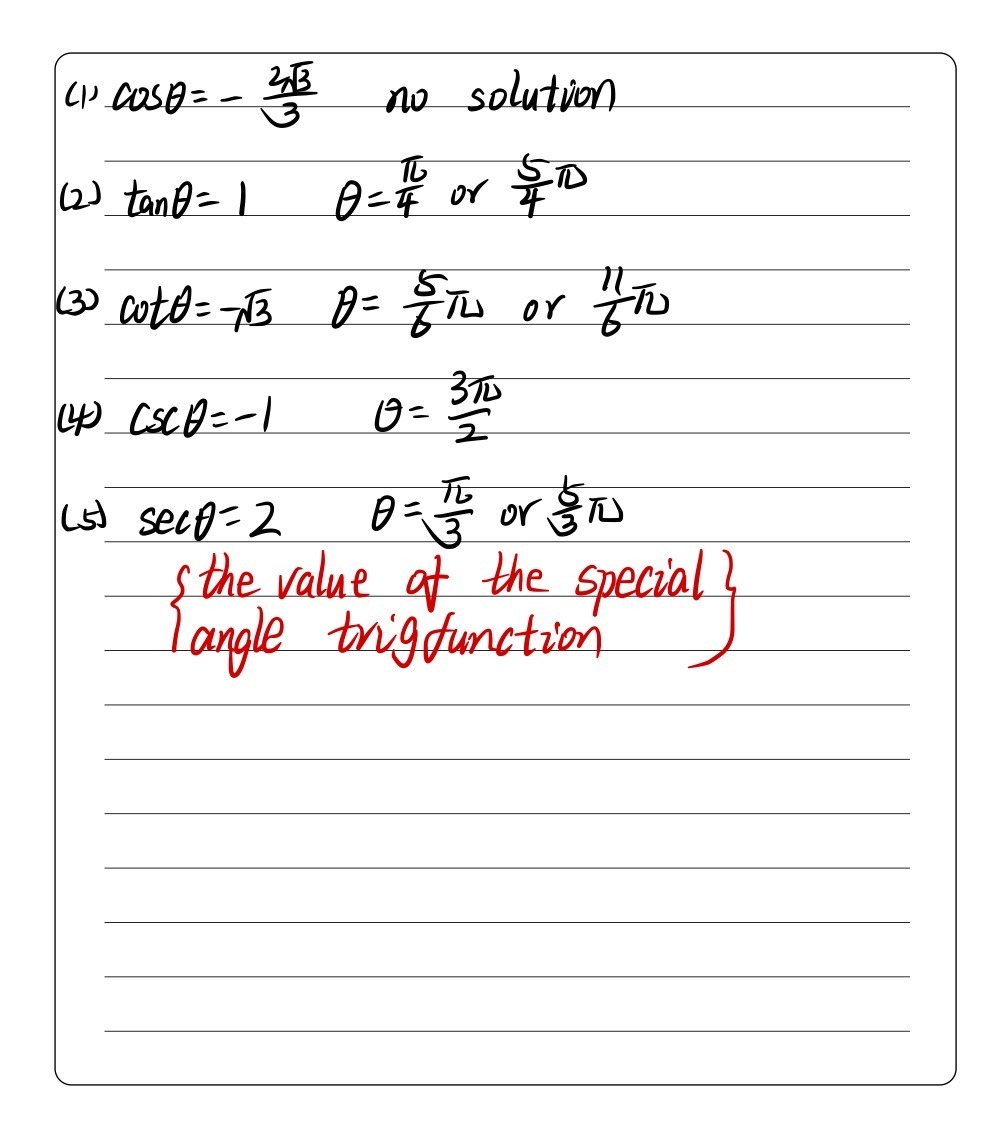 (1) cosθ = - 2√3/3 no solution
(2) tanθ = 1 θ = π/4 or 5/4 π
(3) cotθ = -√3 θ = 5/6 π or 11/6 π
(4) cscθ = -1 θ = 3π/2
(5) secθ = 2 θ = π/3 or 5/3 π
{the value of the special}
angle trig function